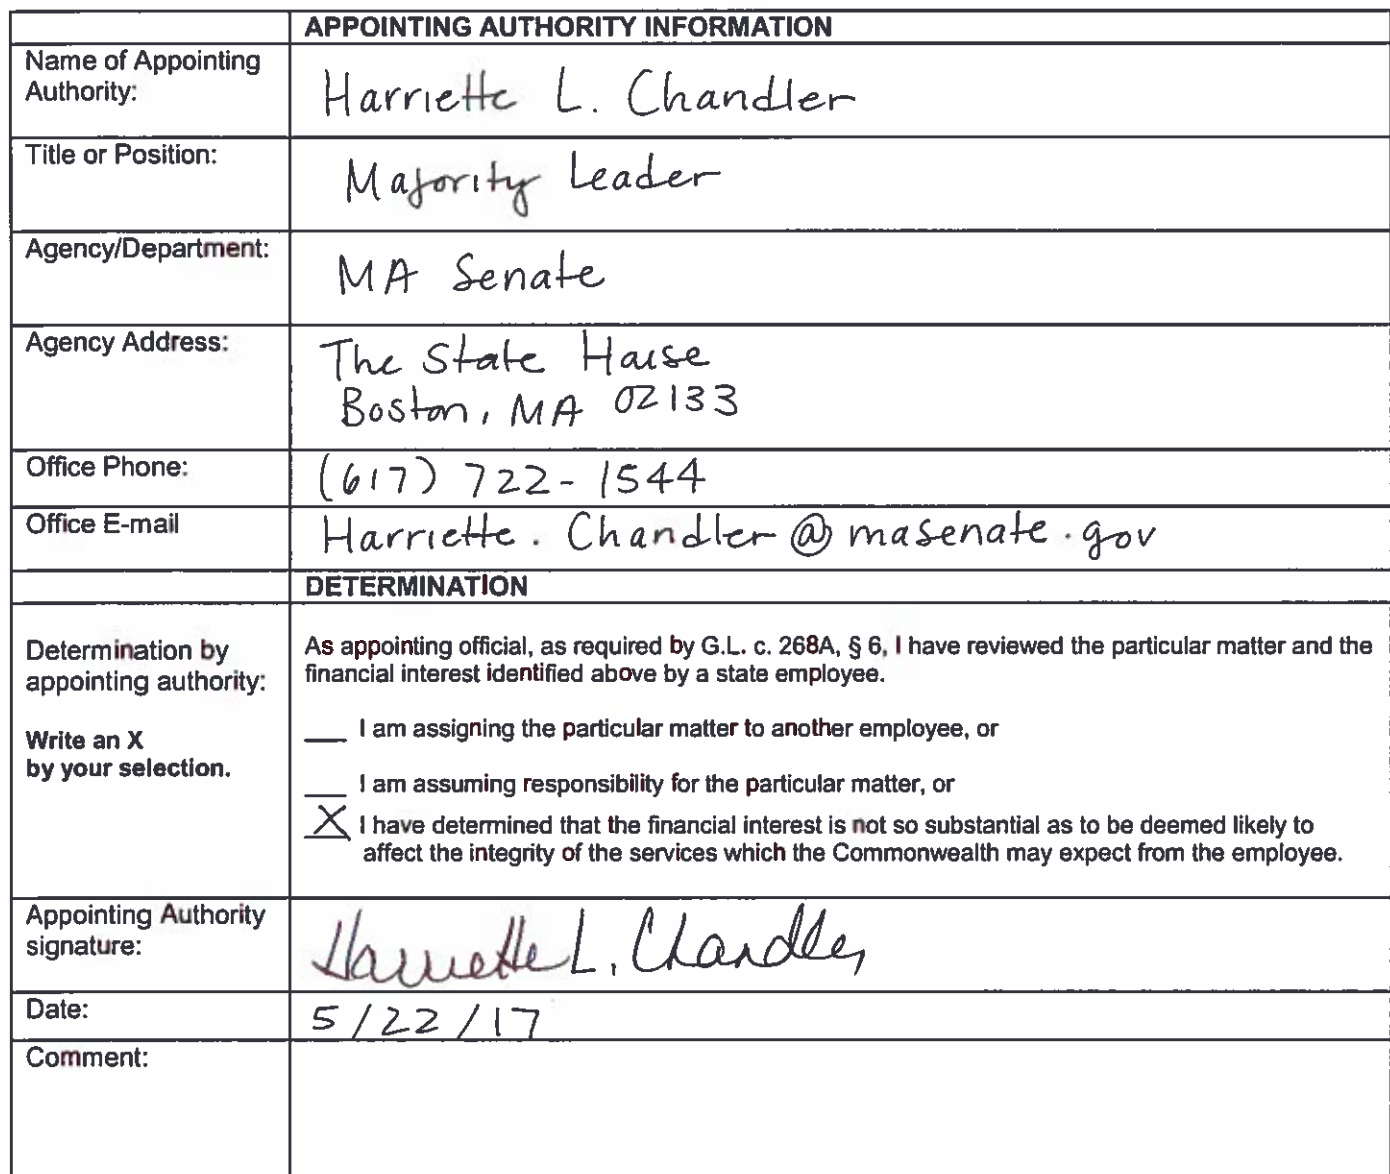 APPOINTING AUTHORITY INFORMATION
Name of Appointing
Authority:
Harriette L. Chandler
Title or Position:
Majority Leader
Agency/Department:
MA Senate
Agency Address:
The State House
Boston, MA 02133
Office Phone:
(617) 722-1544
Office E-mail
Harriette.Chandler@masenate.gov
DETERMINATION
Determination by
appointing authority:
Write an X
by your selection.
As appointing official, as required by G.L. c. 268A, § 6, I have reviewed the particular matter and the
financial interest identified above by a state employee.
___ I am assigning the particular matter to another employee, or
___ I am assuming responsibility for the particular matter, or
X I have determined that the financial interest is not so substantial as to be deemed likely to
affect the integrity of the services which the Commonwealth may expect from the employee.
Appointing Authority
signature:
Harriette L. Chandler
Date:
5/22/17
Comment: